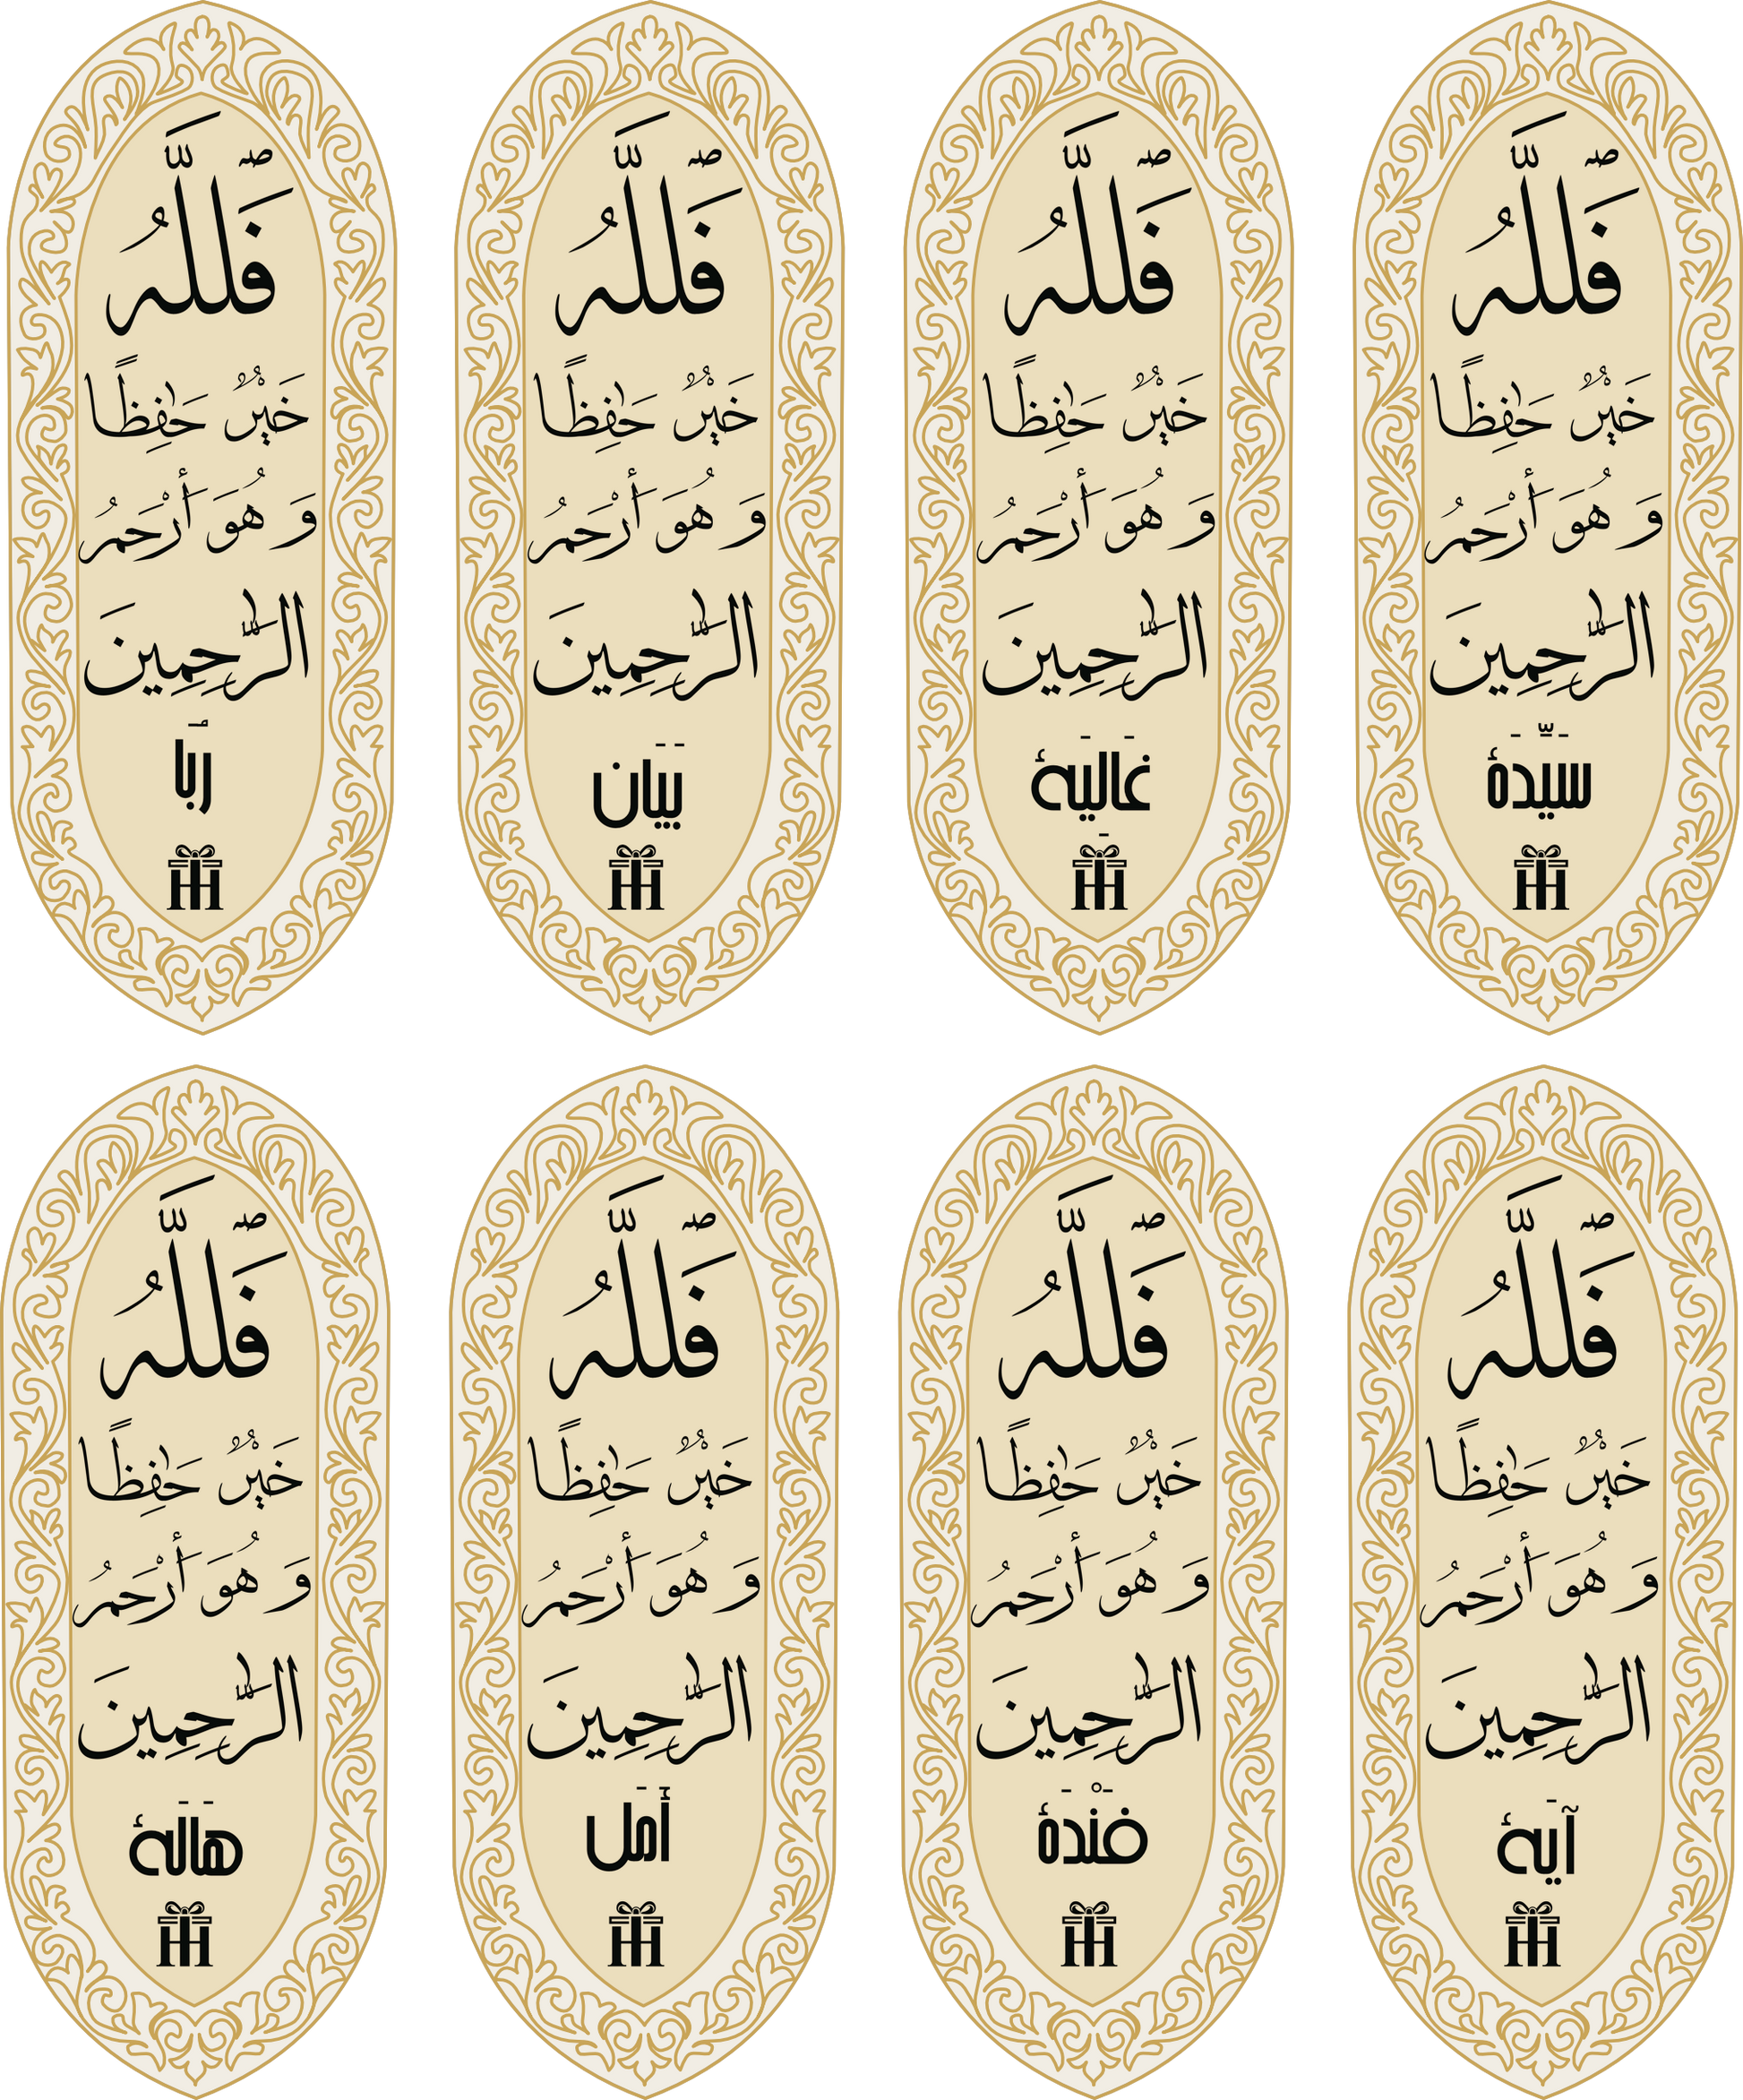 فَللَّهُ
خَيْرٌ حَٰفِظًا
وَ هُوَ أَرْحَمُ
الرَّٰحِمِينَ
سَيِّدَهٔ
فَللَّهُ
خَيْرٌ حَٰفِظًا
وَ هُوَ أَرْحَمُ
الرَّٰحِمِينَ
غَالِيَهٔ
فَللَّهُ
خَيْرٌ حَٰفِظًا
وَ هُوَ أَرْحَمُ
الرَّٰحِمِينَ
بَيَان
فَللَّهُ
خَيْرٌ حَٰفِظًا
وَ هُوَ أَرْحَمُ
الرَّٰحِمِينَ
رُبَا
فَللَّهُ
خَيْرٌ حَٰفِظًا
وَ هُوَ أَرْحَمُ
الرَّٰحِمِينَ
آيَهٔ
فَللَّهُ
خَيْرٌ حَٰفِظًا
وَ هُوَ أَرْحَمُ
الرَّٰحِمِينَ
فَنْدَهٔ
فَللَّهُ
خَيْرٌ حَٰفِظًا
وَ هُوَ أَرْحَمُ
الرَّٰحِمِينَ
أَمَل
فَللَّهُ
خَيْرٌ حَٰفِظًا
وَ هُوَ أَرْحَمُ
الرَّٰحِمِينَ
هَالَهٔ